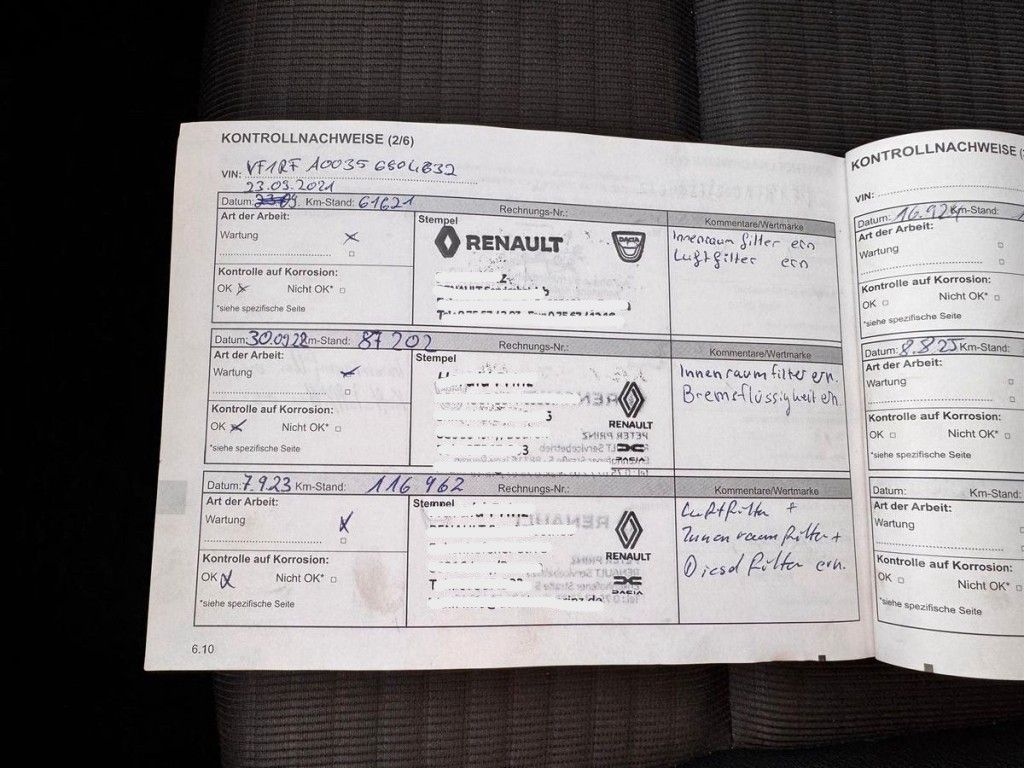 KONTROLLNACHWEISE (2/6)
VIN: VF1RFA00356604832
23.03.2021
Datum: 23.03 Km-Stand: 61621 Rechnungs-Nr.:
Art der Arbeit: Stempel Kommentare/Wertmarke
Wartung
RENAULT
DACIA
Innenraumfilter ern
Luftfilter ern
Kontrolle auf Korrosion:
OK Nicht OK*
*siehe spezifische Seite
Datum: 30.09.22 Km-Stand: 87202 Rechnungs-Nr.:
Art der Arbeit: Stempel Kommentare/Wertmarke
Wartung
Innenraumfilter ern.
Bremsflüssigkeit ern.
RENAULT
DACIA
Kontrolle auf Korrosion:
OK Nicht OK*
*siehe spezifische Seite
Datum: 7.9.23 Km-Stand: 116962 Rechnungs-Nr.:
Art der Arbeit: Stempel Kommentare/Wertmarke
Wartung
Luftfilter +
Innenraumfilter +
Dieselfilter ern.
RENAULT
DACIA
Kontrolle auf Korrosion:
OK Nicht OK*
*siehe spezifische Seite
6.10
KONTROLLNACHWEISE
VIN:
Datum: 16.9.24 Km-Stand:
Art der Arbeit:
Wartung
Kontrolle auf Korrosion:
OK Nicht OK*
*siehe spezifische Seite
Datum: 8.8.25 Km-Stand:
Art der Arbeit:
Wartung
Kontrolle auf Korrosion:
OK Nicht OK*
*siehe spezifische Seite
Datum: Km-Stand:
Art der Arbeit:
Wartung
Kontrolle auf Korrosion:
OK Nicht OK*
*siehe spezifische Seite